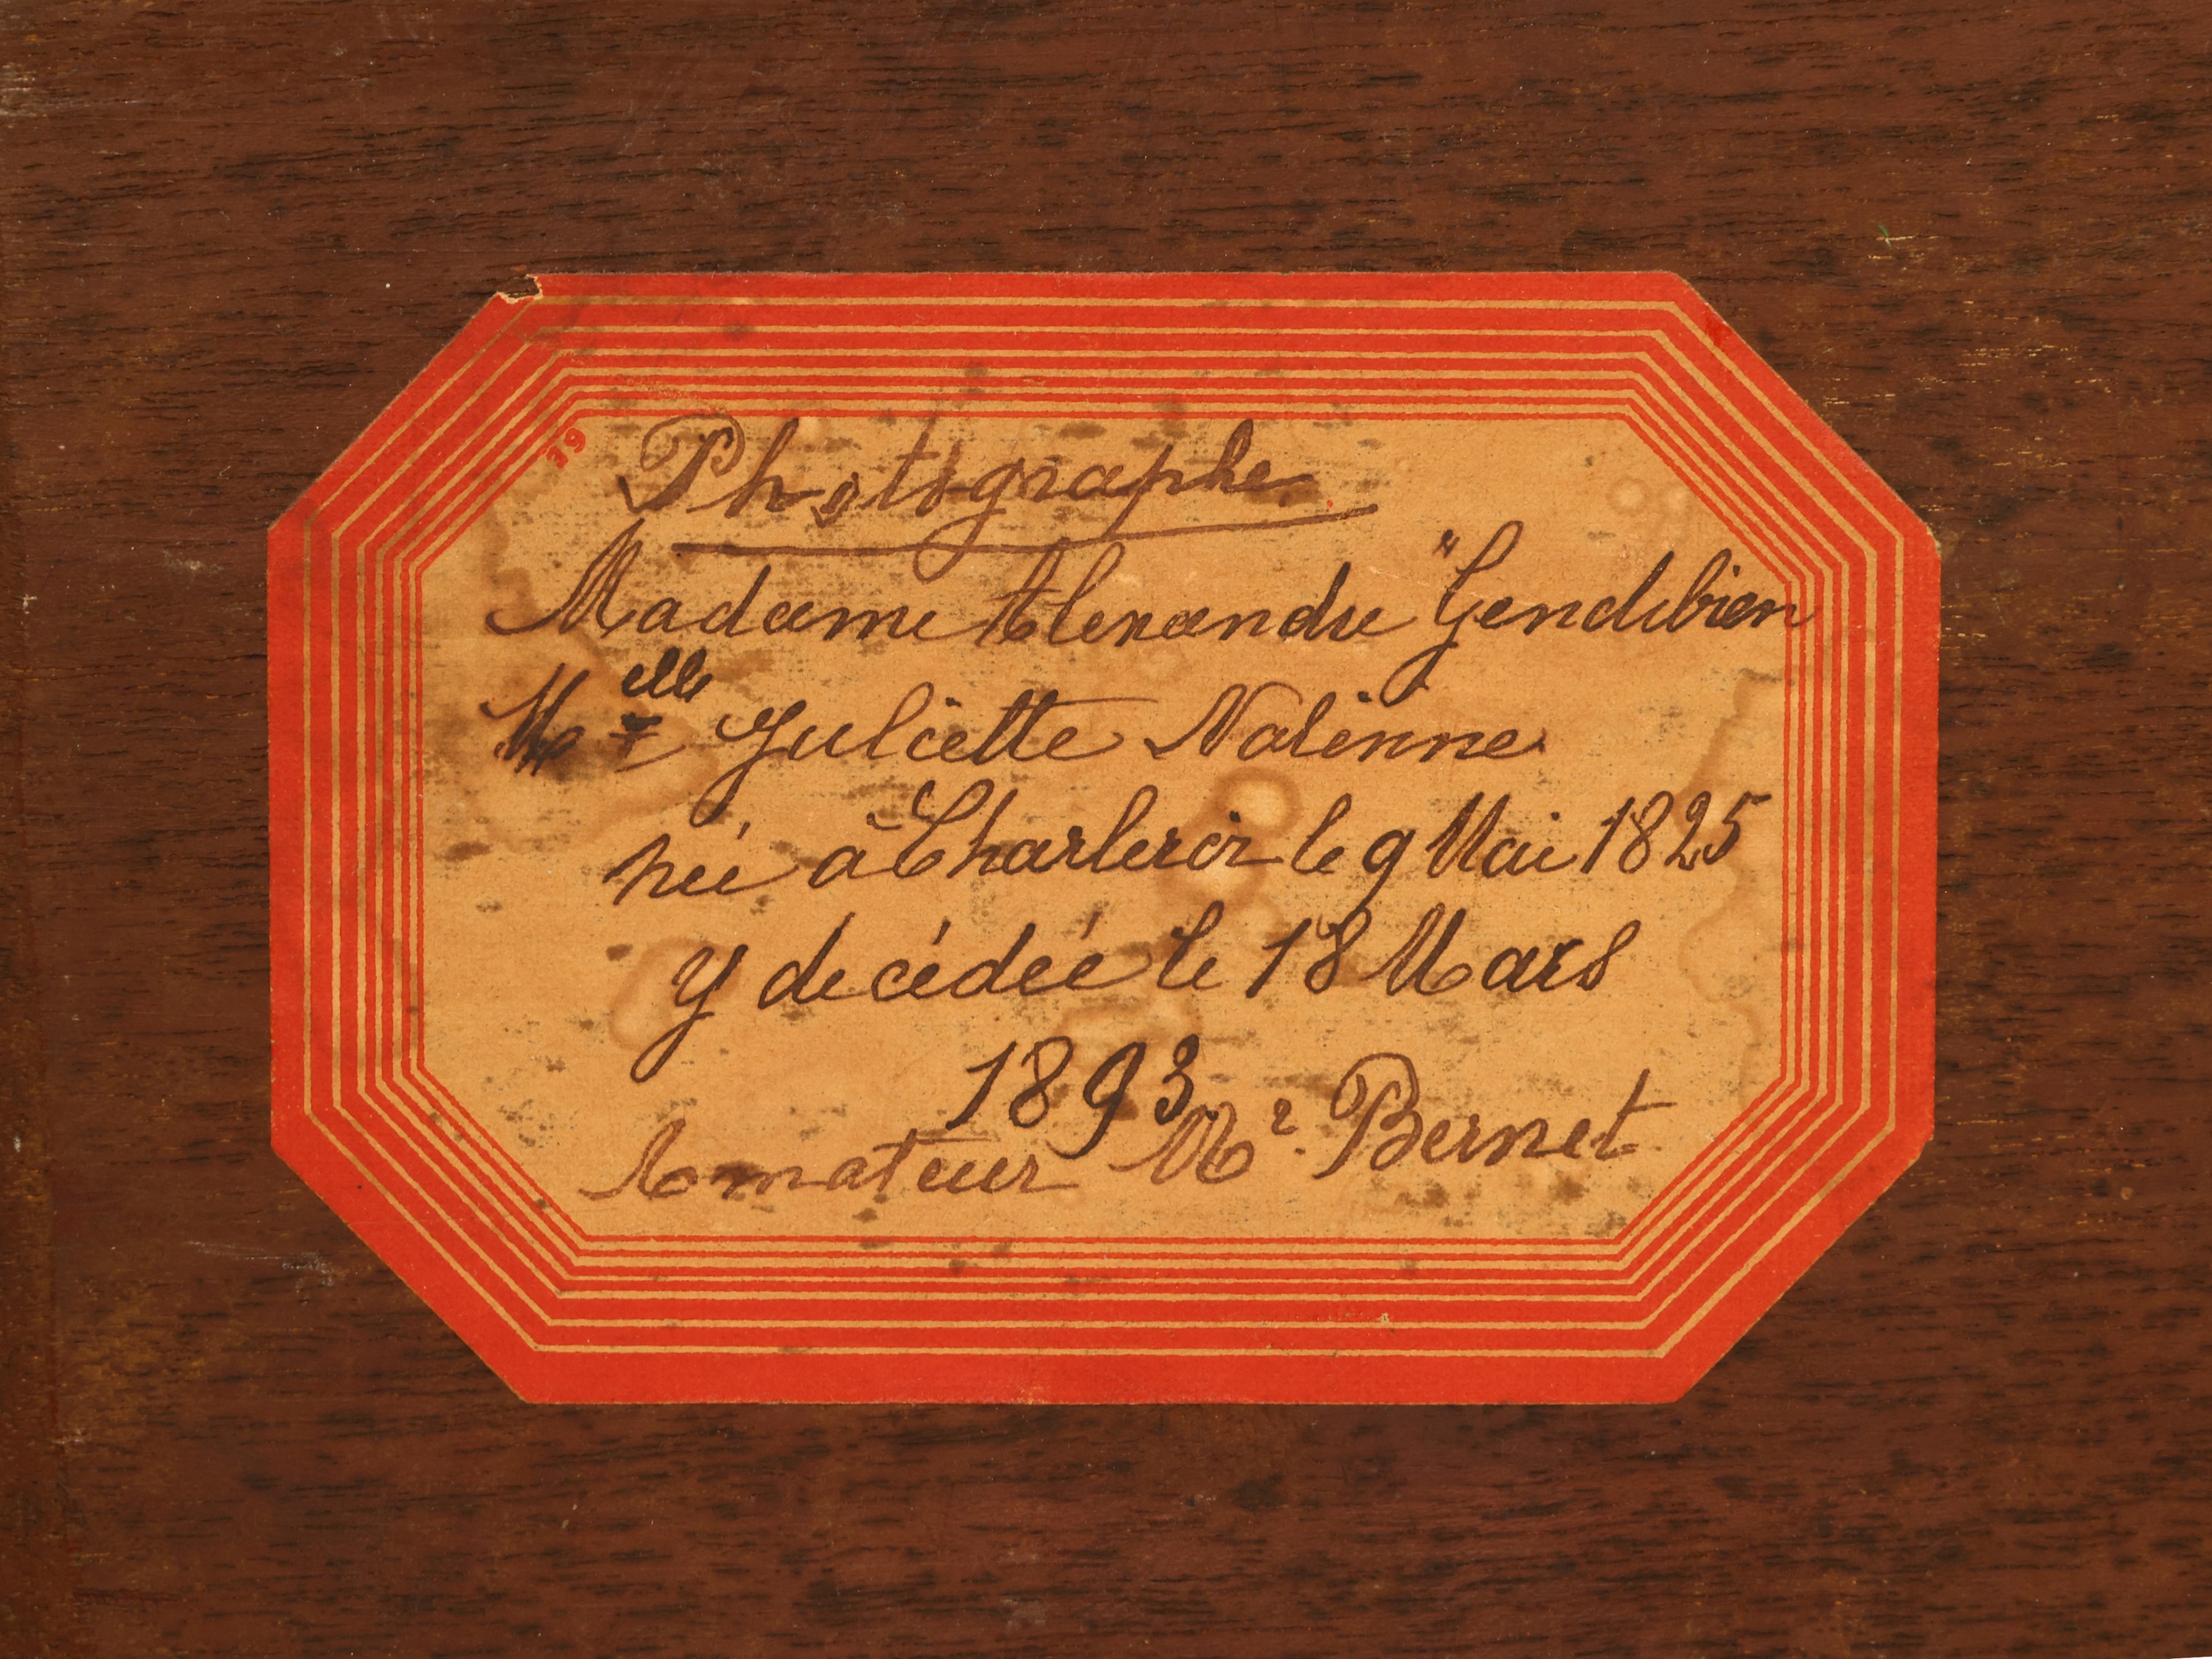 Photographe
Madame Alexandre "Gendebien
Melle Juliette Nalinne
née à Charleroi le 9 Mai 1825
y décédée le 18 Mars
1893
Amateur Mr. Bernet